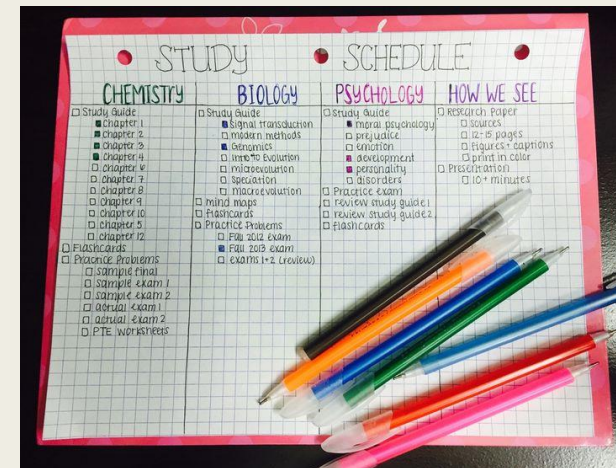 STUDY SCHEDULE
CHEMISTRY
Study Guide
Chapter 1
Chapter 2
Chapter 3
Chapter 4
Chapter 6
Chapter 7
Chapter 8
Chapter 9
Chapter 10
Chapter 5
Chapter 12
Flashcards
Practice Problems
sample final
sample exam 1
sample exam 2
actual exam 1
actual exam 2
PTE worksheets
BIOLOGY
Study Guide
Signal transduction
modern methods
Genomics
intro to Evolution
microevolution
Speciation
macroevolution
mind maps
flashcards
Practice Problems
Fall 2012 exam
Fall 2013 exam
exams 1+2 (review)
PSYCHOLOGY
Study Guide
moral psychology
prejudice
emotion
development
personality
disorders
Practice exam
review study guide 1
review study guide 2
flashcards
HOW WE SEE
Research Paper
sources
12-15 pages
figures + captions
print in color
Presentation
10+ minutes